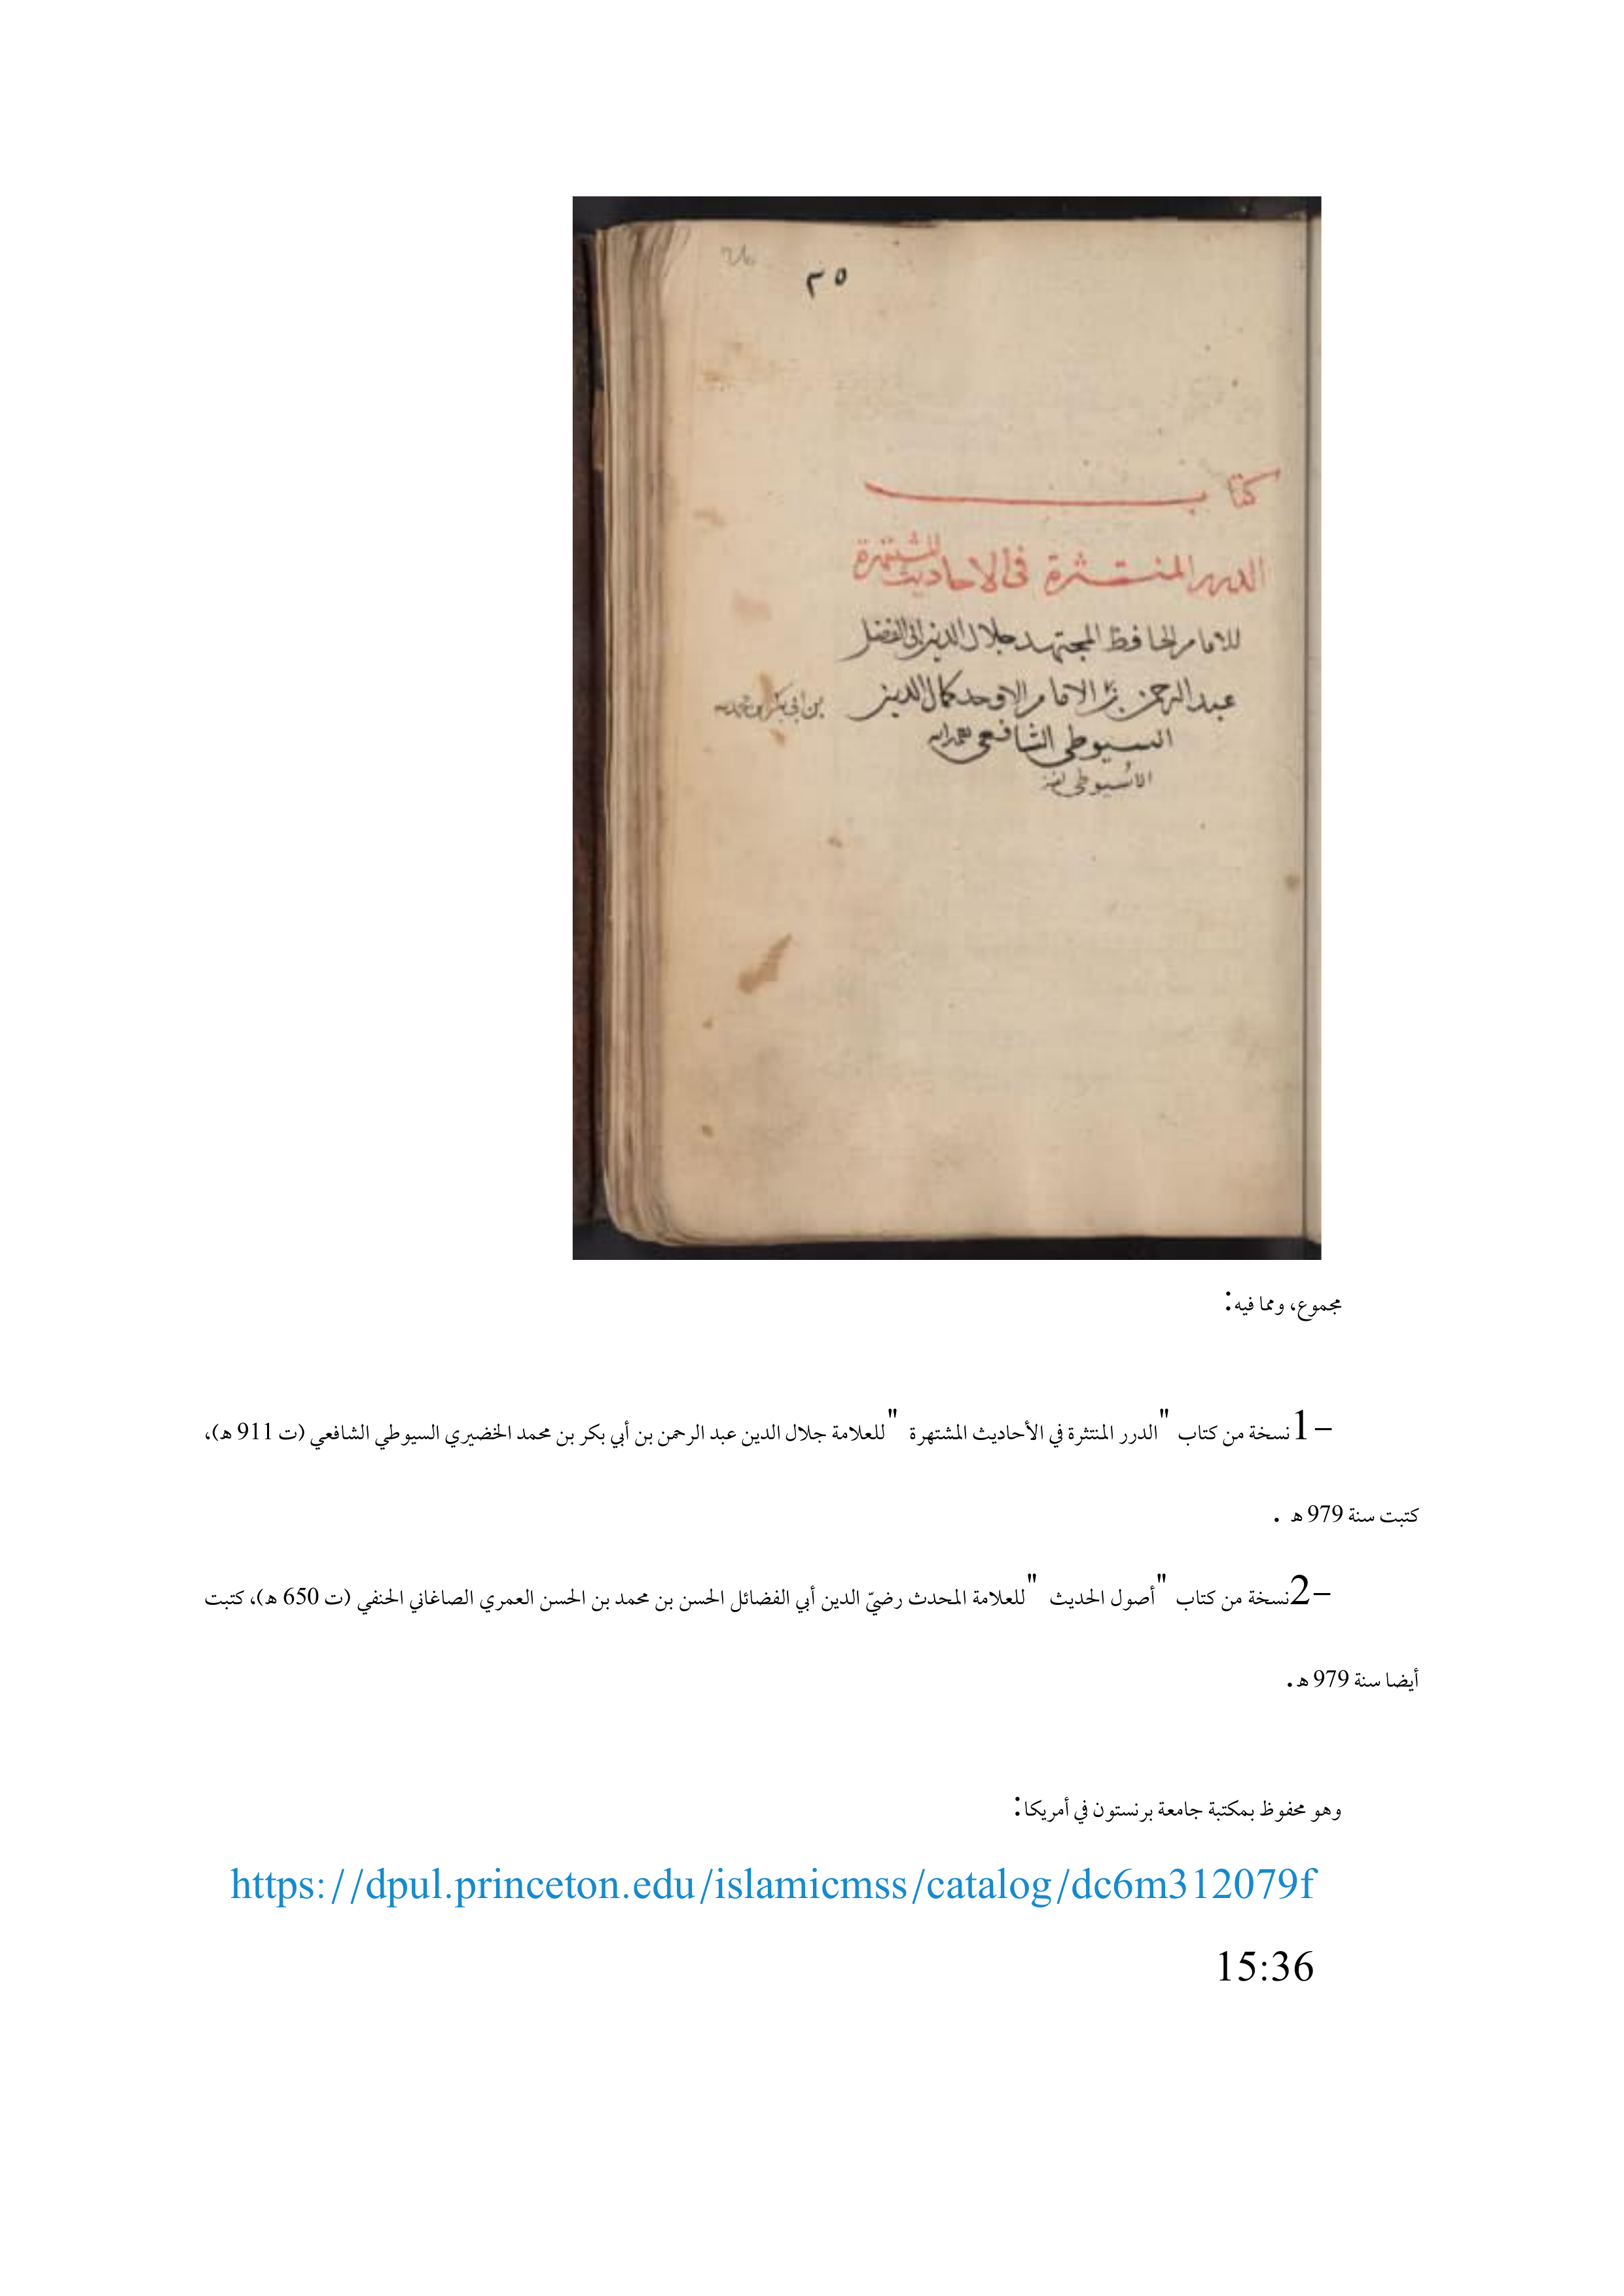 ٢٥
كتاب
الدرر المنتثرة في الاحاديث المشتهرة
للامام الحافظ المجتهد جلال الدين ابي الفضل
عبد الرحمن بن الامام الاوحد كمال الدين
بن ابي بكر بن محمد
السيوطي الشافعي
الاسيوطي
مجموع، ومما فيه:
1- نسخة من كتاب "الدرر المنتثرة في الأحاديث المشتهرة" للعلامة جلال الدين عبد الرحمن بن أبي بكر بن محمد الخضيري السيوطي الشافعي (ت 911 هـ)،
كتبت سنة 979 هـ .
2- نسخة من كتاب "أصول الحديث" للعلامة المحدث رضيّ الدين أبي الفضائل الحسن بن محمد بن الحسن العمري الصاغاني الحنفي (ت 650 هـ)، كتبت
أيضا سنة 979 هـ.
وهو محفوظ بمكتبة جامعة برنستون في أمريكا:
https://dpul.princeton.edu/islamicmss/catalog/dc6m312079f
15:36